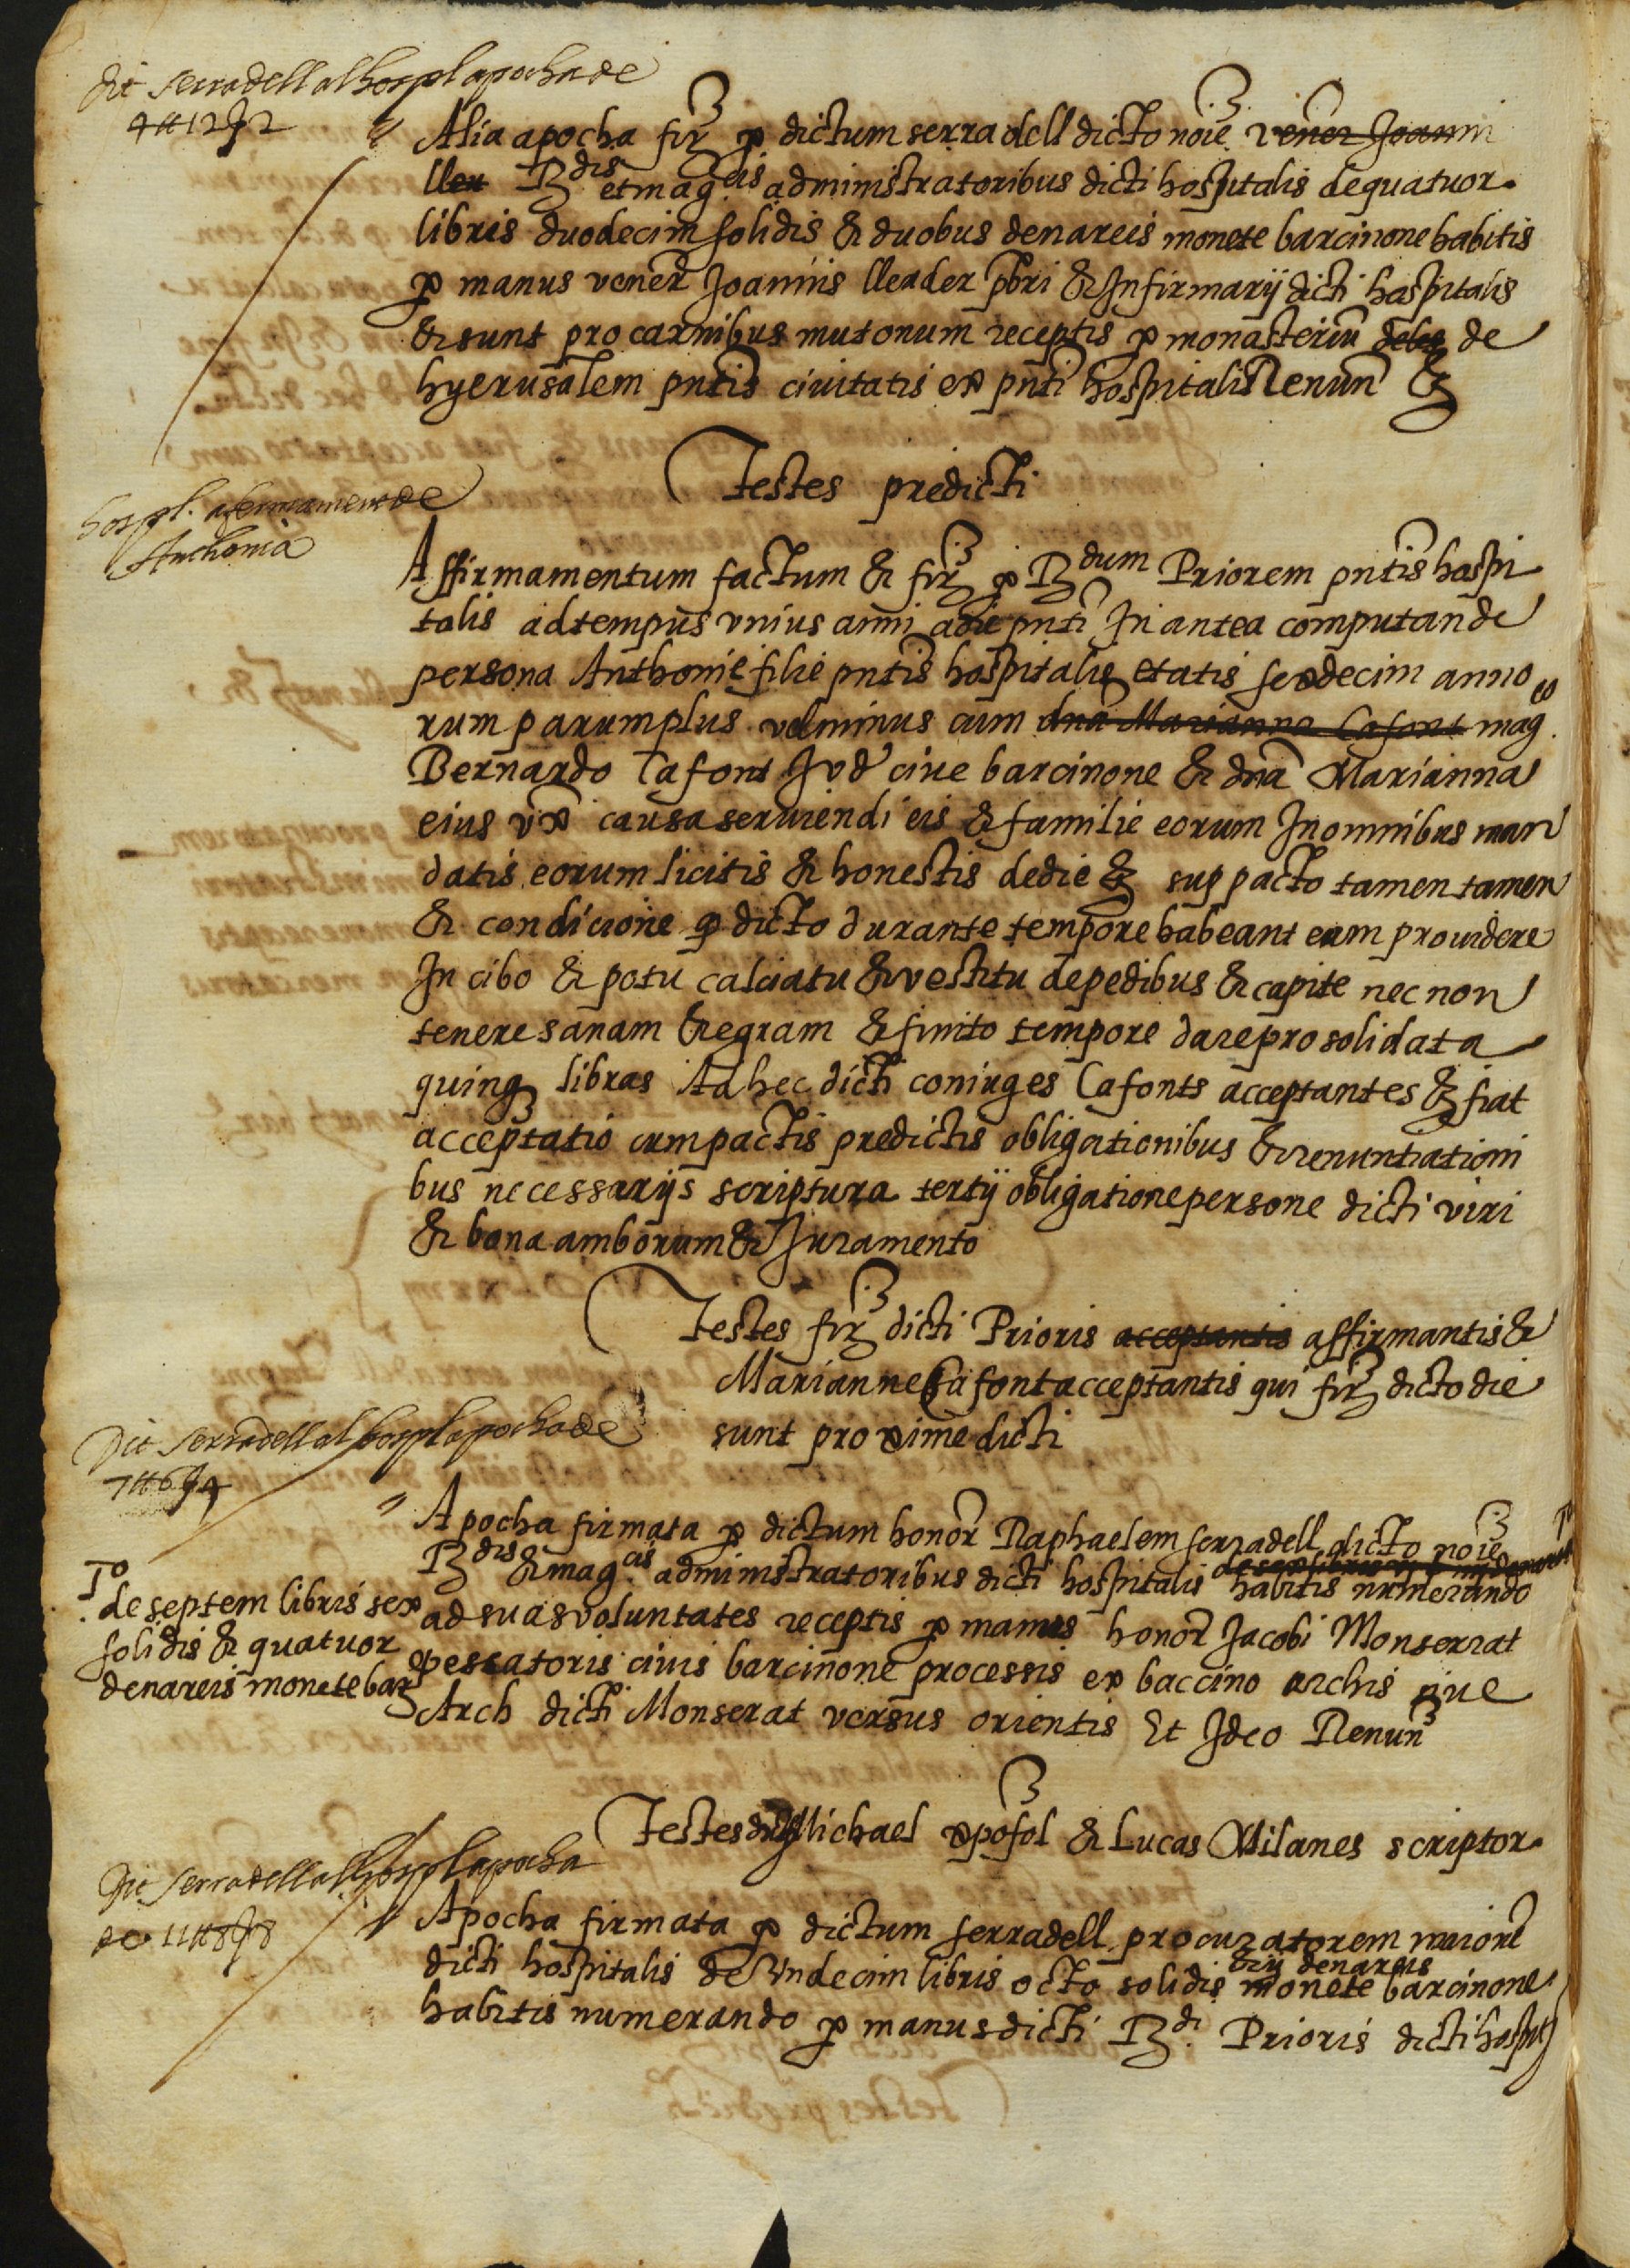 dit serradell al hospl apocha de
4 ₶ 12 ẜ 2
Alia apocha firᷓ p dictum serradell dicto noiē vener Joanni
lleu Rdis et magcis administratoribus dicti hospitalis de quatuor
libris duodecim solidis & duobus denareis monete barcinone habitis
p manus vener Joannis lleader pbri & Infirmarij dicti hospitalis
& sunt pro carnibus mutonum receptis p monasteriū deles de
hyerusalem pntis ciuitatis ex pnti hospitalis Renun &
Testes predicti
hospl. afermament de
Anthonia
Affirmamentum factum & fir p Rdum Priorem pntis hospi
talis ad tempus vnius anni a die pnti In antea computande
persona Anthonie filie pntis hospitalis etatis sexdecim anno
rum parum plus vel minus cum dna Marianna Cafont magco
Bernardo Cafont Jvd ciue barcinone & dna Marianna
eius vx causa seruiendi eis & familie eorum In omnibus man
datis eorum licitis & honestis de die & sup pacto tamen tamen
& condicione q dicto durante tempore habeant eam prouidere
In cibo & potu calciatu & vestitu de pedibus & capite nec non
tenere sanam & egram & finito tempore dare pro solidata
quinq libras Ad hec dicti coniuges Cafonts acceptantes & fiat
acceptatio cum pactis predictis obligationibus & renuntiationi
bus necessarijs scriptura tertij obligatione persone dicti viri
& bona amborum & Juramento
Testes fir dicti Prioris acceptantis affirmantis &
Marianne Cafont acceptantis qui fir dicto die
sunt proxime dicti
Dit serradell al hospl apocha de
7 ₶ 6 ẜ 4
Apocha firmata p dictum honor Raphaelem serradell dicto noiē
Rdis & magcis administratoribus dicti hospitalis de sex libris habitis numerando
To de septem libris sex
solidis & quatuor
denareis monete bar
ad suas voluntates receptis p manus honor Jacobi Monserrat
pessatoris ciuis barcinone processis ex baccino archis siue
Arch dicti Monserat versus orientis Et Ideo Renun
Testes dns Michael xpofol & Lucas Milanes scriptor
Dit serradell al hospl apocha
de 11 ₶ 8 ẜ 8
Apocha firmata p dictum serradell procuratorem maiore
dicti hospitalis de Vndecim libris octo solidis viij denareis monete barcinone
habitis numerando p manus dicti Rdi Prioris dicti hospit